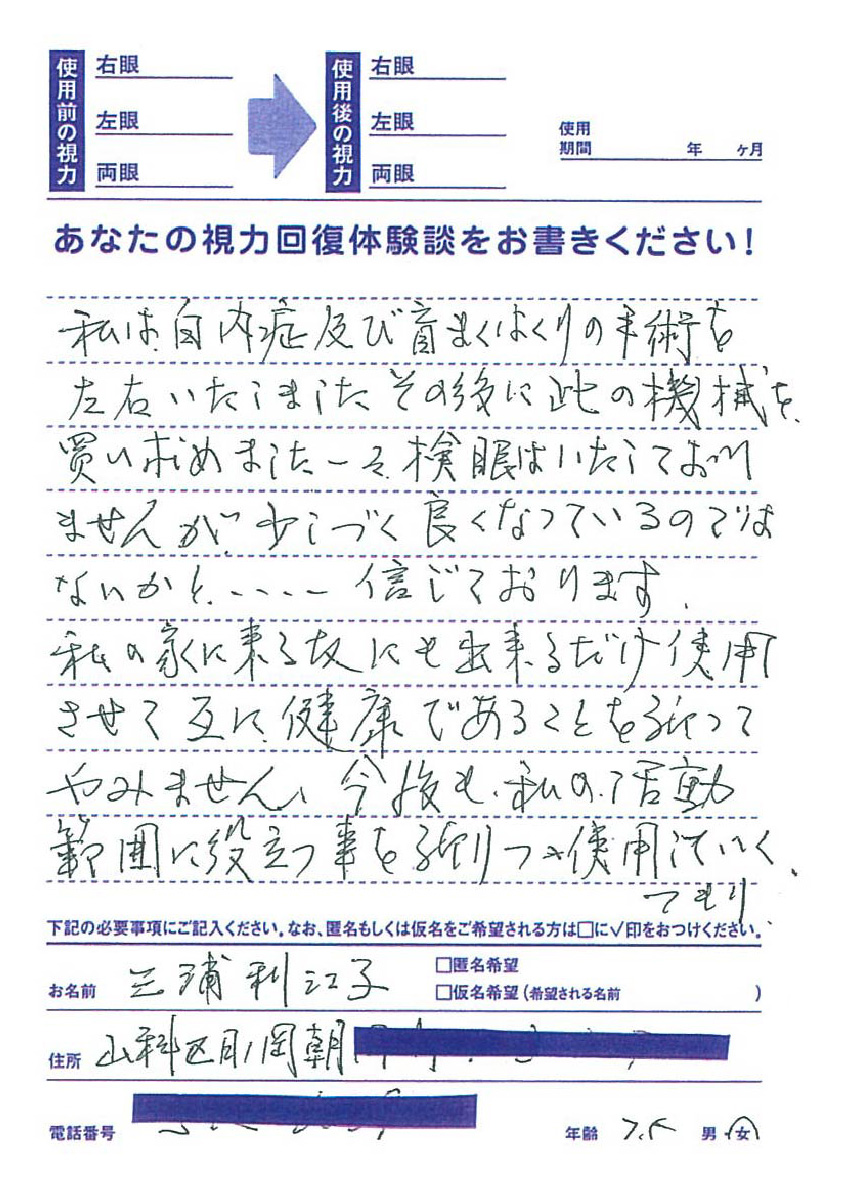 使用前の視力
右眼
左眼
両眼
使用後の視力
右眼
左眼
両眼
使用
期間 年 ヶ月
あなたの視力回復体験談をお書きください!
私は白内症及び盲まくはくりの手術を
左右いたしましたその後に此の機械を、
買い求めました一々検眼はいたしており
ませんが、少しづく良くなっているのでは
ないかと、---- 信じております、
私の家に来る友にも出来るだけ使用
させて互に、健康であることを祈って
やみません、今後も、私の、活動
範囲に役立つ事を祈りつゝ使用していく、
つもり、
下記の必要事項にご記入ください。なお、匿名もしくは仮名をご希望される方は□に✓印をおつけください。
お名前 三浦利江子 □匿名希望
□仮名希望(希望される名前 )
住所 山科区日ノ岡朝
電話番号 年齢 男・女